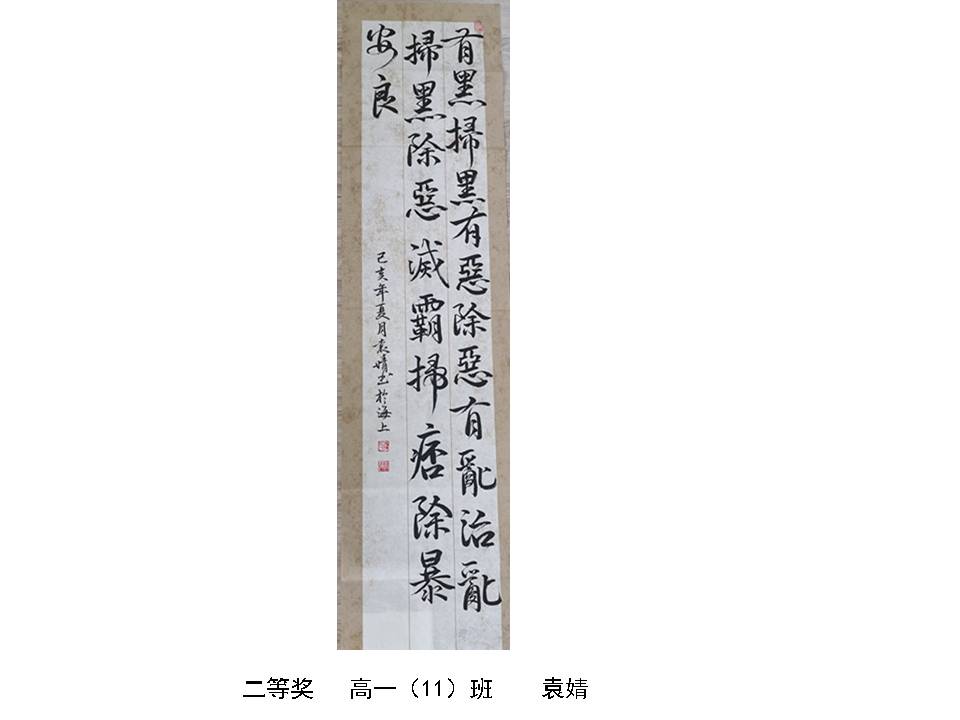 有黑掃黑有惡除惡有亂治亂
掃黑除惡滅霸掃痞除暴
安良
己亥年夏月袁婧书於海上
二等奖 高一（11）班 袁婧